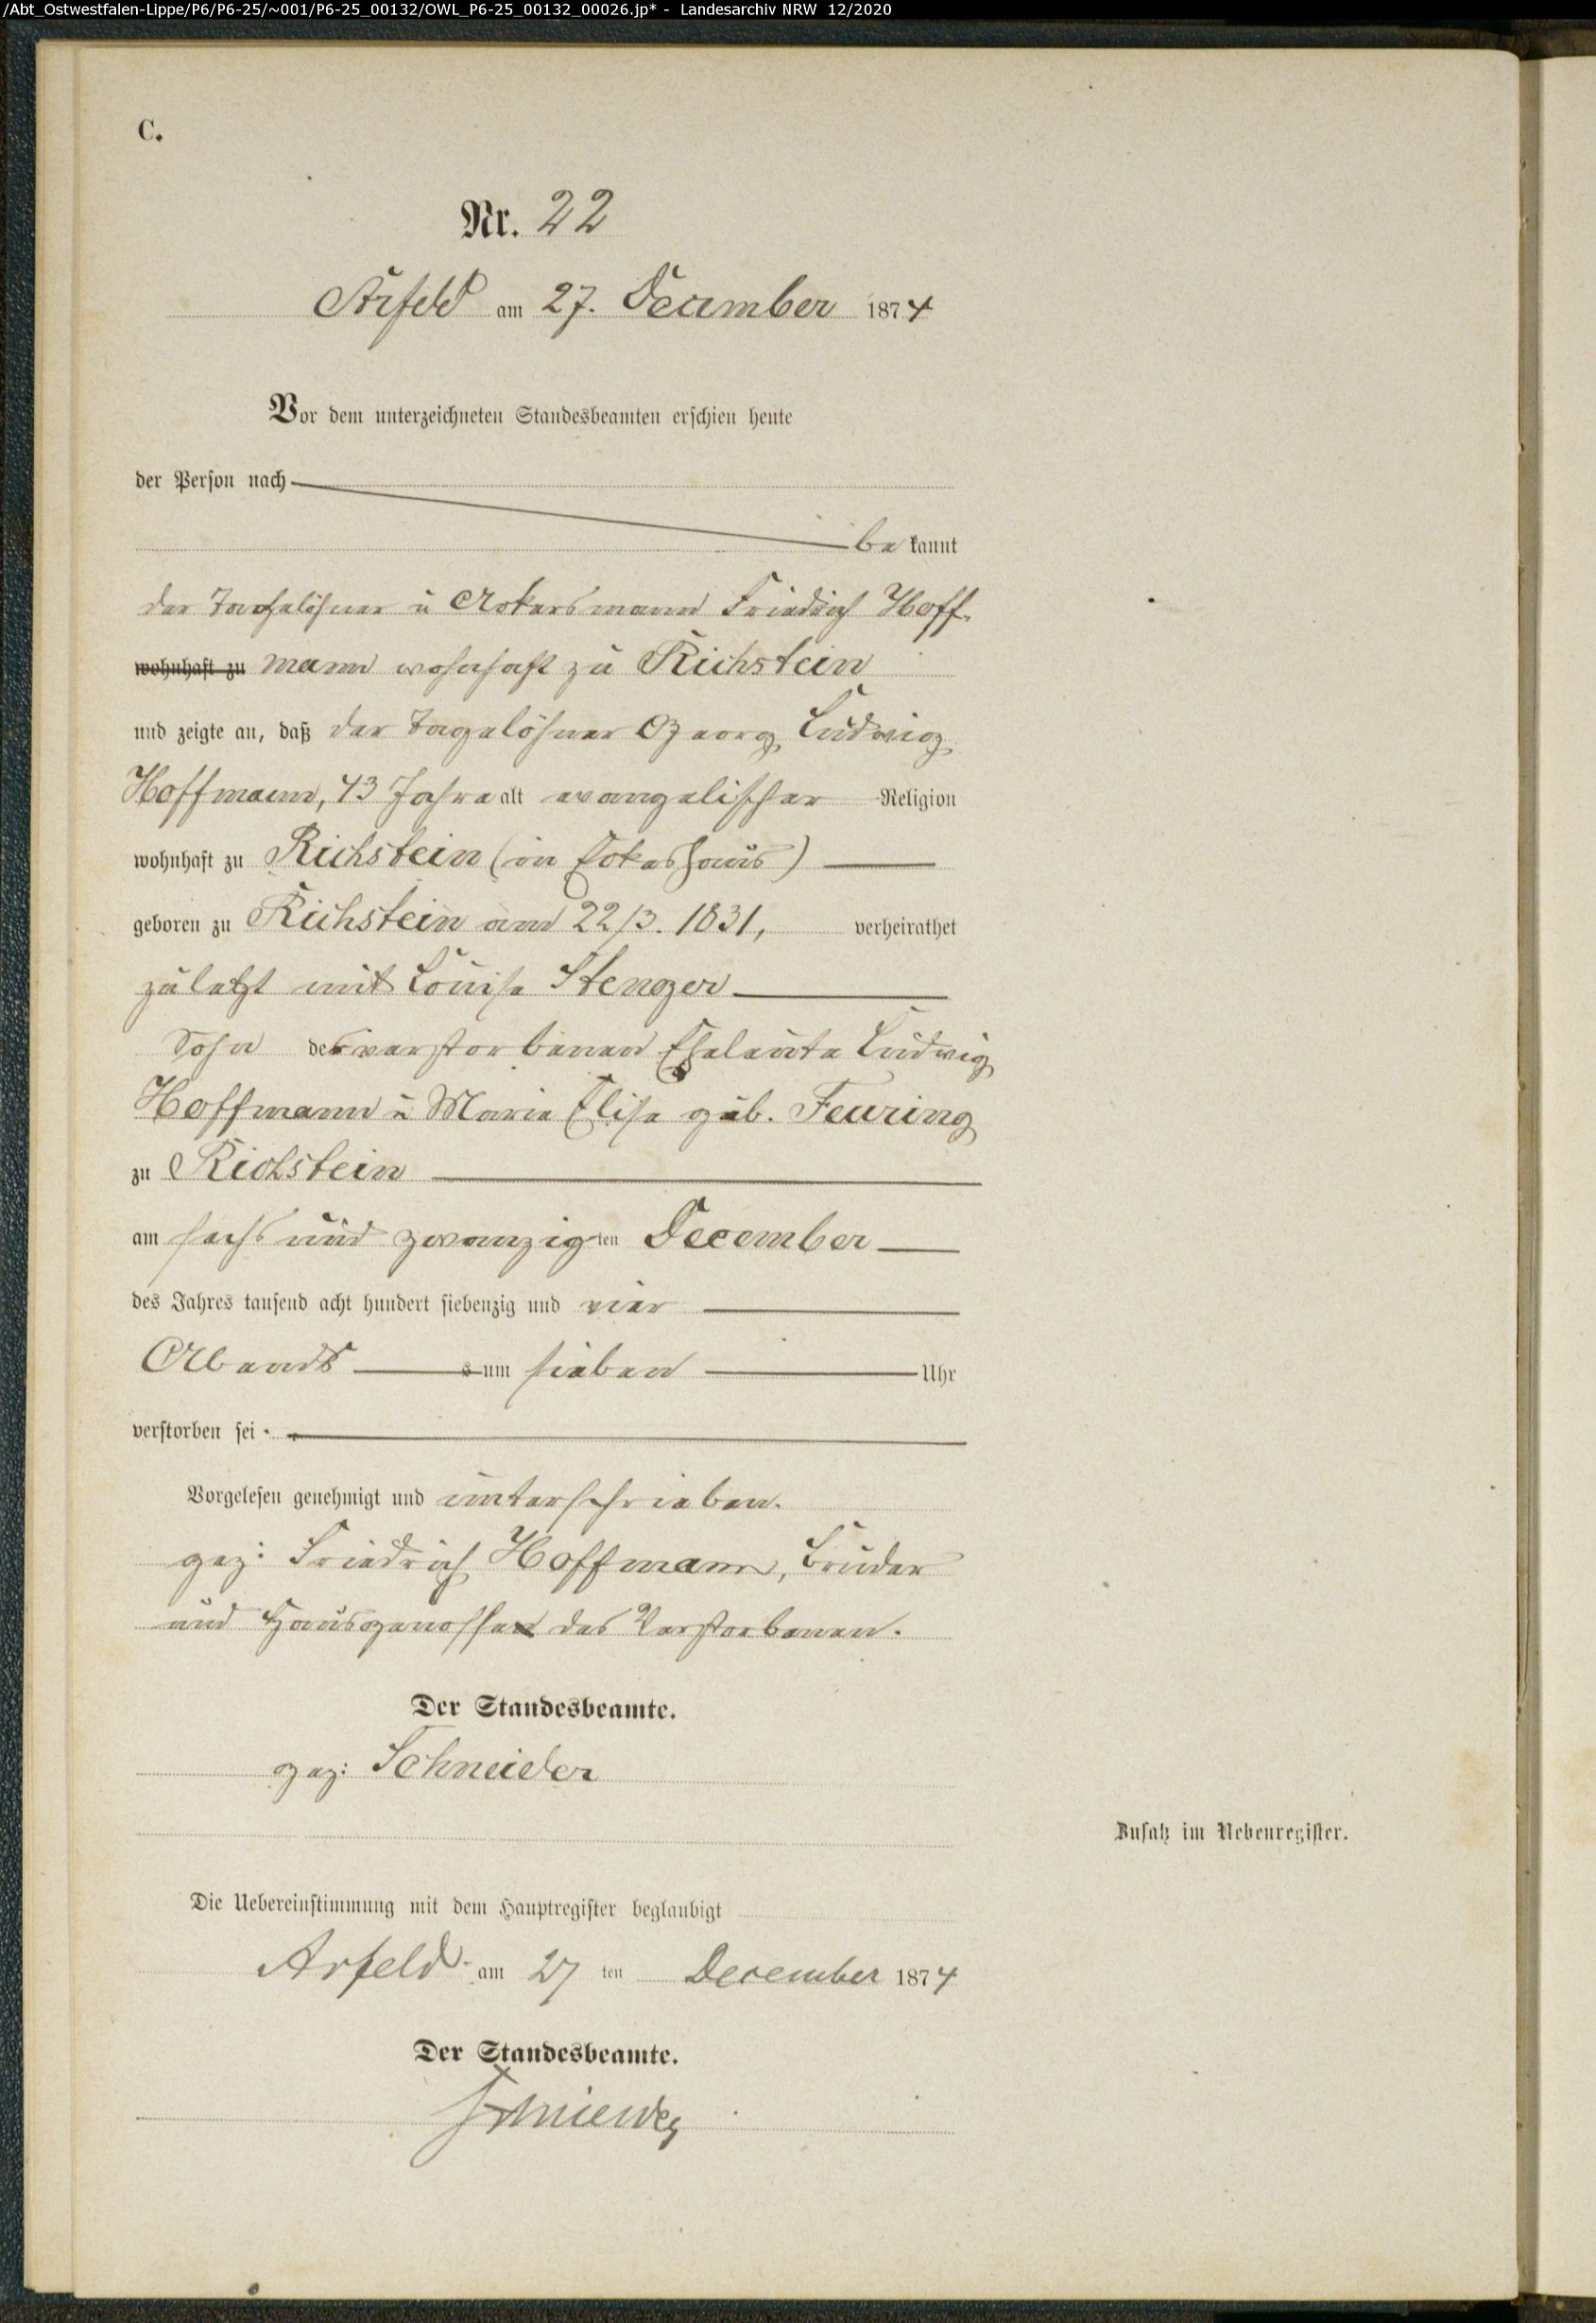 /Abt_Ostwestfalen-Lippe/P6/P6-25/~001/P6-25_00132/OWL_P6-25_00132_00026.jp* - Landesarchiv NRW 12/2020
C.
Nr. 22
Arfeld am 27. December 1874
Vor dem unterzeichneten Standesbeamten erschien heute
der Person nach
be kannt
der Tagelöhner u Ackersmann Friedrich Hoff-
wohnhaft zu mann wohnhaft zu Richstein
und zeigte an, daß der Tagelöhner Georg Ludwig
Hoffmann, 43 Jahre alt evangelischer Religion
wohnhaft zu Richstein (in Eckeshaus)
geboren zu Richstein am 22/3. 1831, verheirathet
zuletzt mit Louise Stenger
Sohn der verstorbenen Eheleute Ludwig
Hoffmann u Marie Elise geb. Feuring
zu Richstein
am sechs und zwanzigten December
des Jahres tausend acht hundert siebenzig und vier
Abends s um sieben Uhr
verstorben sei.
Vorgelesen genehmigt und unterschrieben.
gez: Friedrich Hoffmann, Bruder
und Hausgenosse des Verstorbenen.
Der Standesbeamte.
gez: Schneider
Zusatz im Nebenregister.
Die Uebereinstimmung mit dem Hauptregister beglaubigt
Arfeld am 27 ten December 1874
Der Standesbeamte.
Schneider